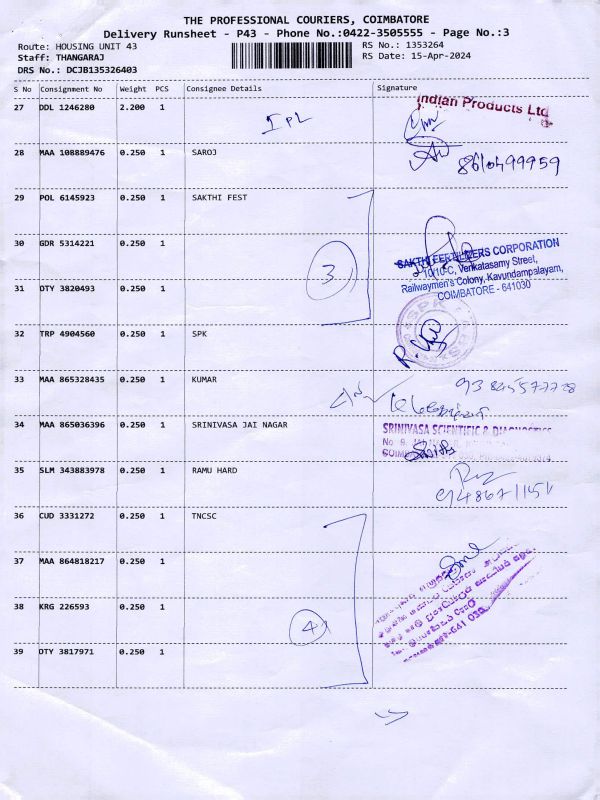 THE PROFESSIONAL COURIERS, COIMBATORE
Delivery Runsheet - P43 - Phone No.:0422-3505555 - Page No.:3
Route: HOUSING UNIT 43
RS No.: 1353264
Staff: THANGARAJ
RS Date: 15-Apr-2024
DRS No.: DCJB135326403
S No Consignment No Weight PCS Consignee Details Signature
27 DDL 1246280 2.200 1
IPL
Indian Products Ltd
28 MAA 108889476 0.250 1 SAROJ
29 POL 6145923 0.250 1 SAKTHI FEST
30 GDR 5314221 0.250 1
3
SAKTHI FERTILIZERS CORPORATION
10/10-C, Venkatasamy Street,
Railwaymen's Colony, Kavundampalayam,
COIMBATORE - 641030
31 DTY 3820493 0.250 1
32 TRP 4904560 0.250 1 SPK
SPK
33 MAA 865328435 0.250 1 KUMAR
34 MAA 865036396 0.250 1 SRINIVASA JAI NAGAR
SRINIVASA SCIENTIFIC & DIAGNOSTICS
35 SLM 343883978 0.250 1 RAMU HARD
36 CUD 3331272 0.250 1 TNCSC
37 MAA 864818217 0.250 1
38 KRG 226593 0.250 1
4
39 DTY 3817971 0.250 1